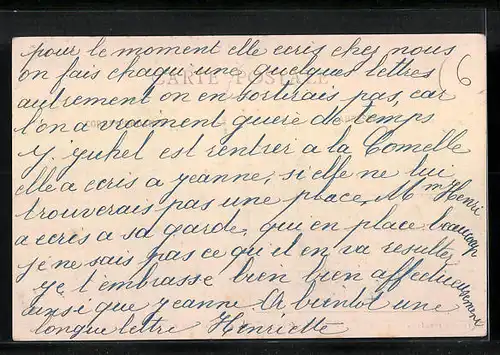 pour le moment elle ecris chez nous
on fais chaqu'une quelques lettres
autrement on en sortirais pas, car
l'on a vraiment guere de temps
est rentrer a la Comelle
elle a ecris a jeanne, si elle ne lui
trouverais pas une place, Mm Henri
a ecris a sa garde, qui en place beaucoup
je ne sais pas ce qu'il en va resulter
je t'embrasse bien bien affectueusement
ainsi que jeanne. A bientot une
longue lettre Henriette
6
CARTE POSTALE